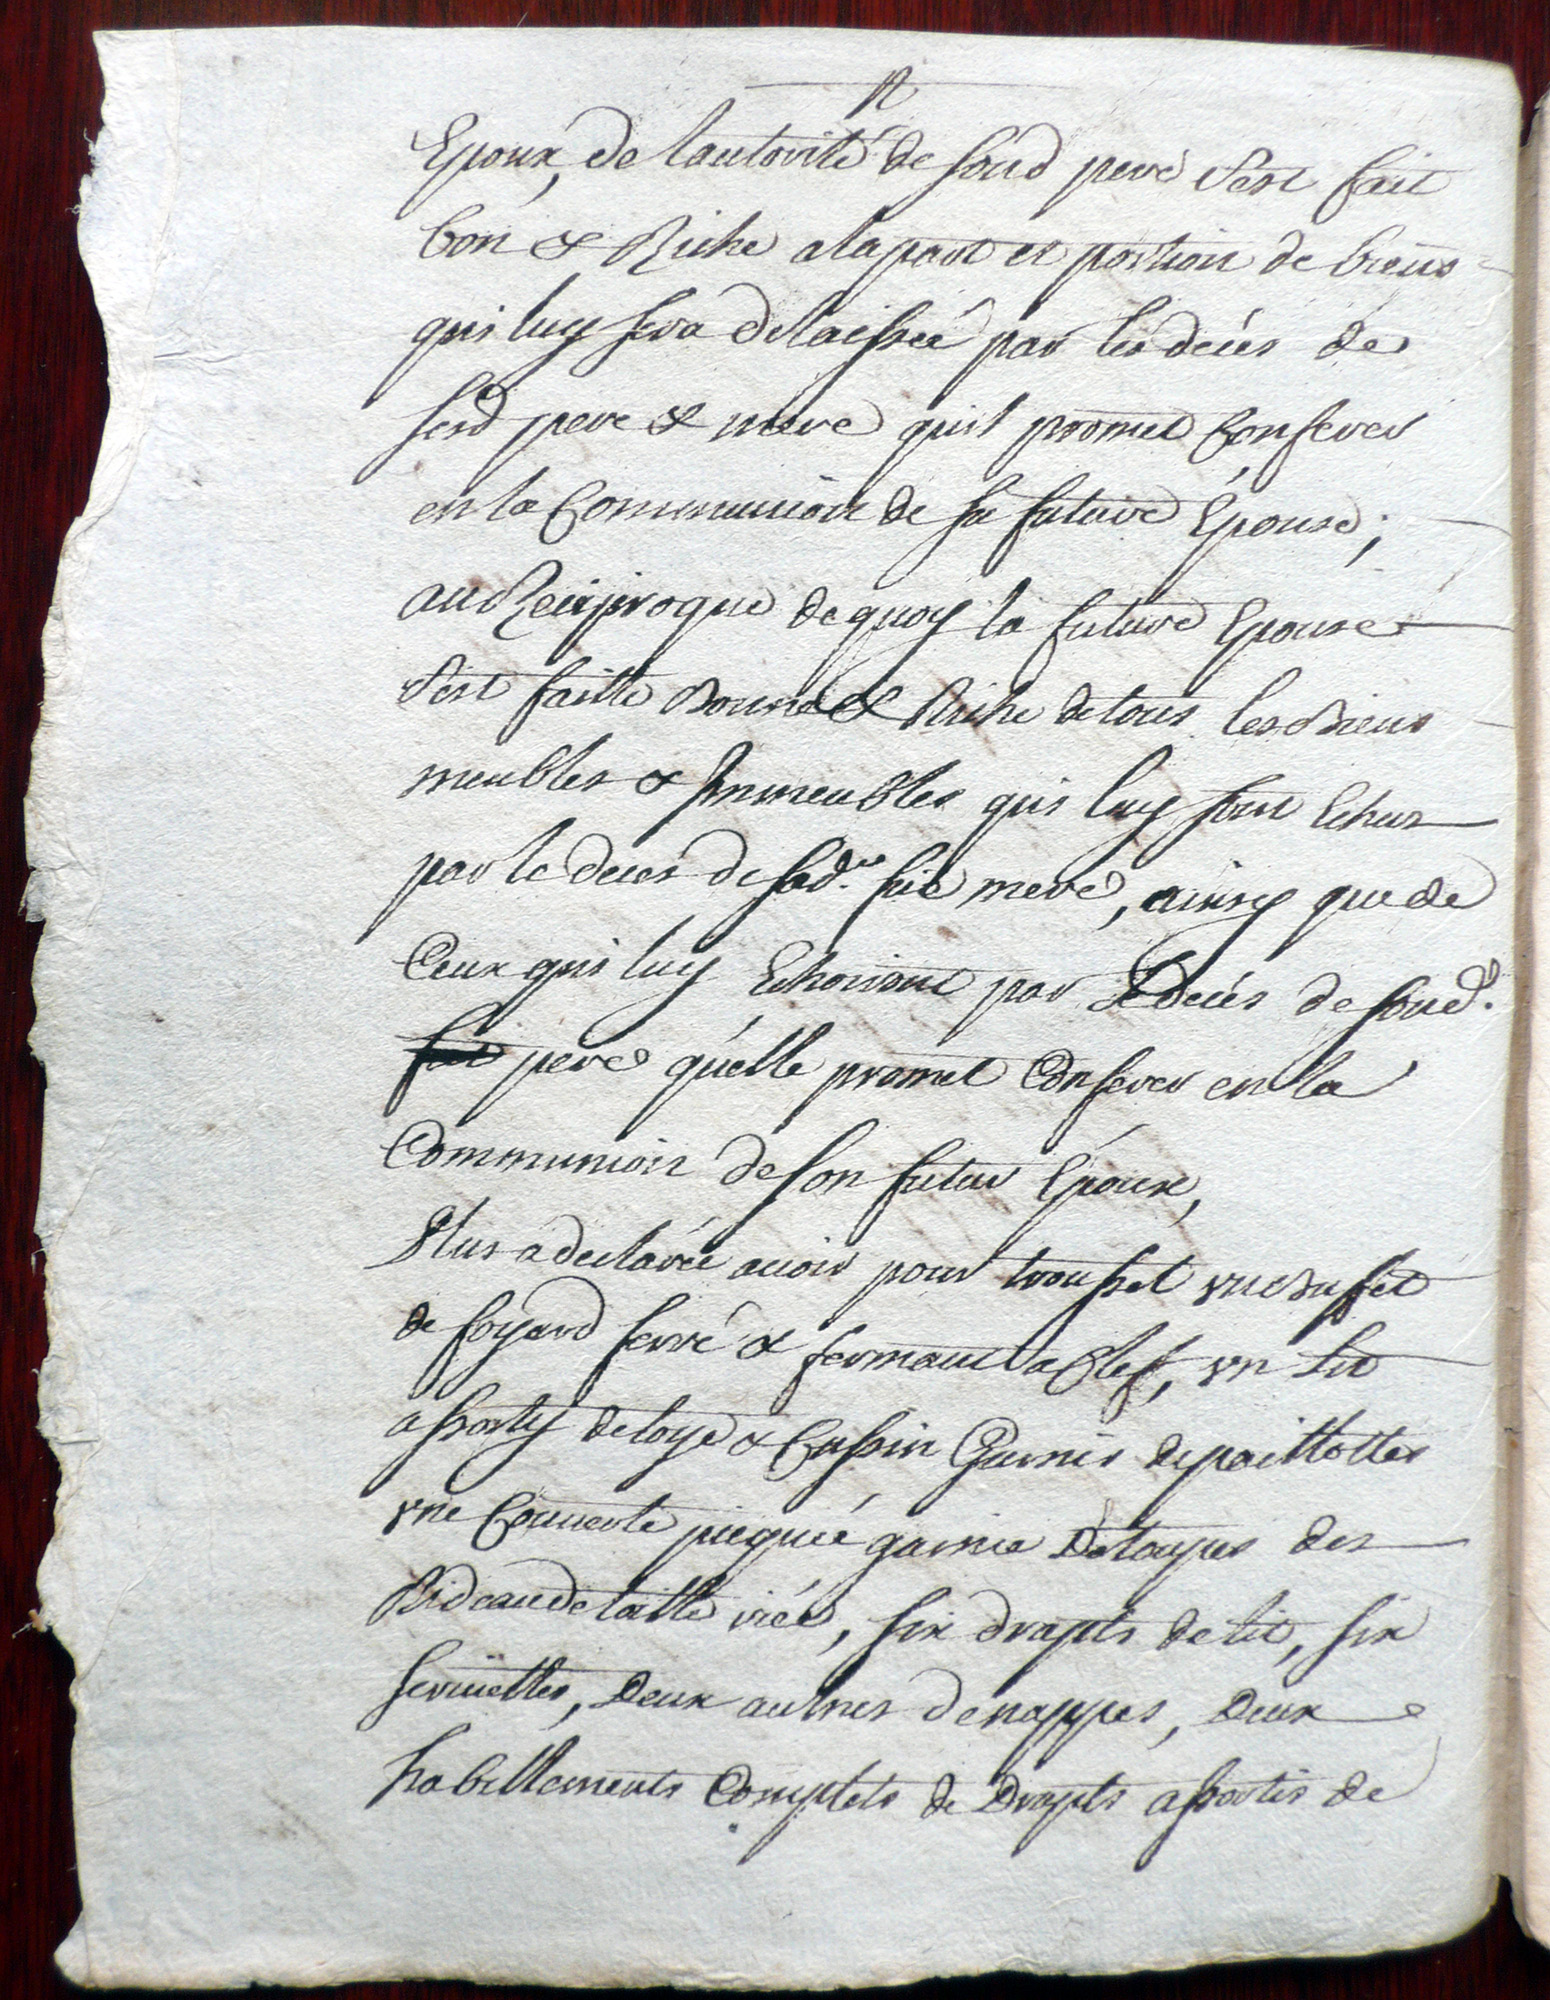 Epoux, de lautorité de soud pere s'est fait
bon & Riche alapart et portion de biens
qui luy sera delaissée par les deces de
sesd pere & mere quil promet Conferer
en la Communion de sa future Epouse;
au Reciproque dequoy la future Epouse
s'est faitte Bonne & Riche detous les Biens
meubles & Immeubles qui luy sont Echus
par le deces de sad.te feüe mere, ainsy que de
Ceux qui luy Echoiront par Le deces de soud.
pere qu'elle promet Conferer en la
Communion de son futur Epoux,
Plus a declarée avoir pour trousset un Buffet
de foyard ferré & fermant a Clef, un Lit
assorty detoye & Cussin Garnis depaillottes
une Couverte picquée garnie Detoupes des
Rideau detoille, six drapts de lit, six
serviettes, Deux autres denappes, Deux
habillements Complets de Drapts assortis de